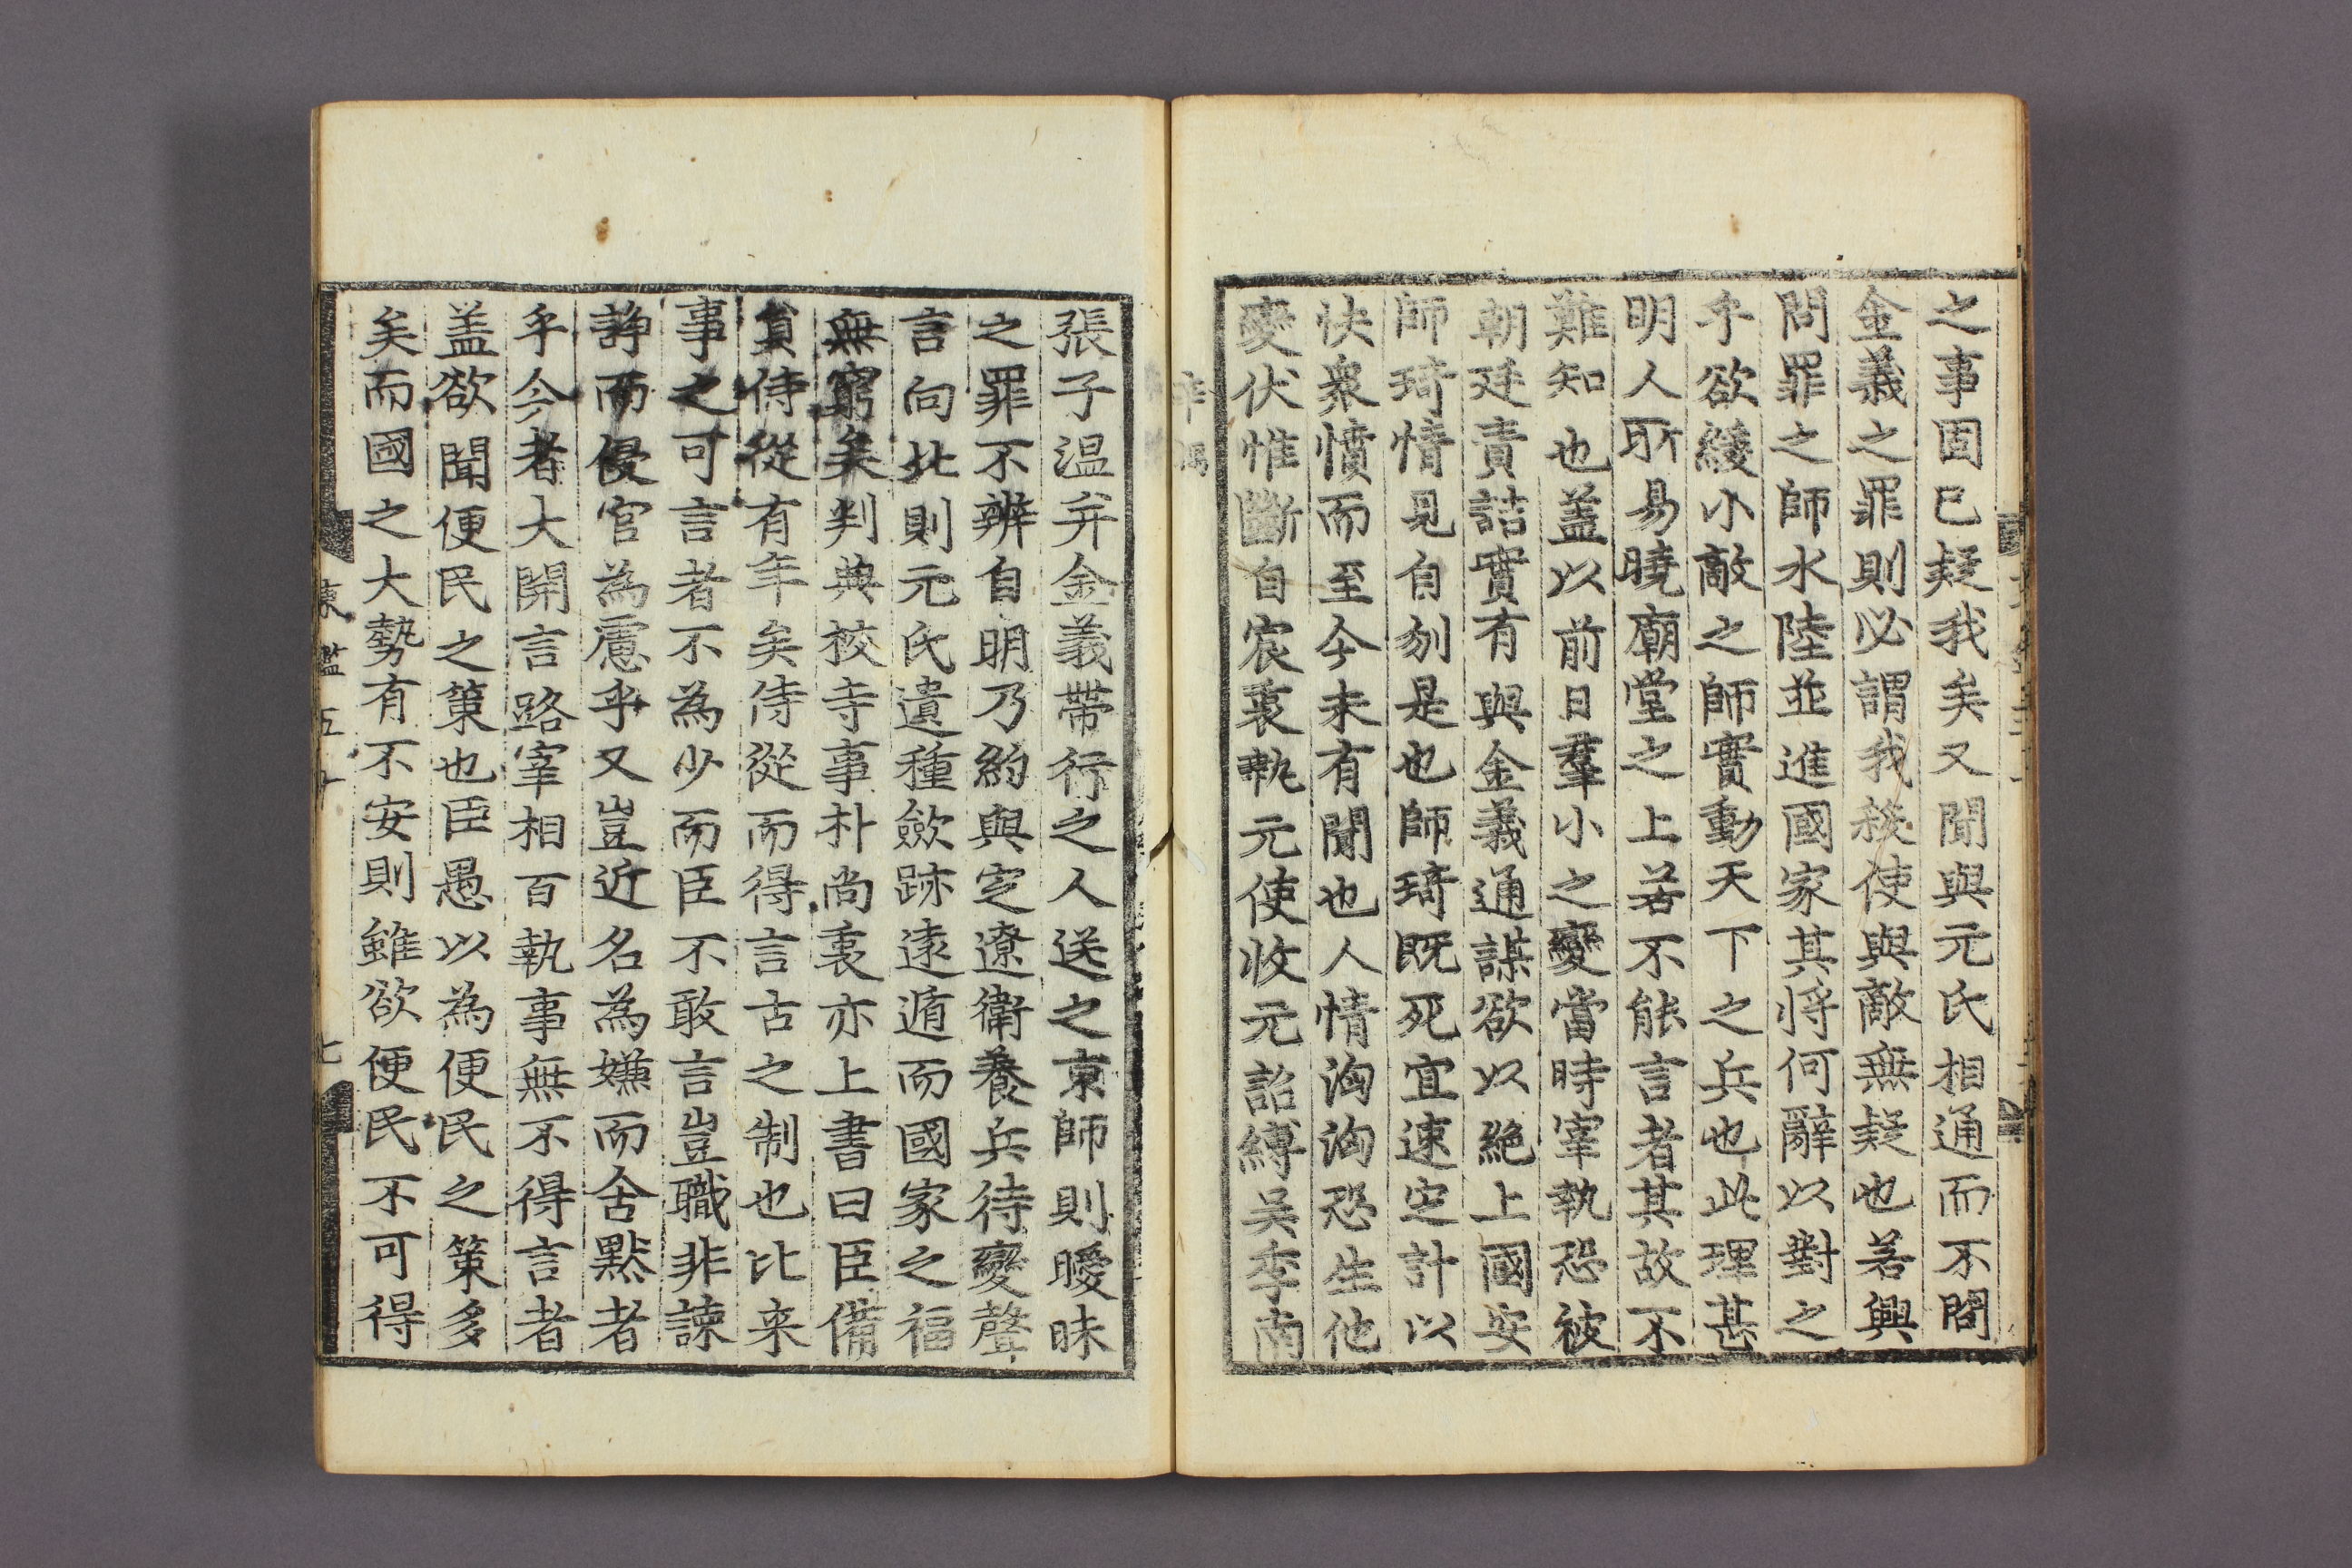 之事固已疑我矣又聞與元氏相通而不問
金義之罪則必謂我㪅使與敵無疑也若興
問罪之師水陸並進國家其將何辭以對之
乎欲緩小敵之師實動天下之兵也此理甚
明人所易曉廟堂之上若不能言者其故不
難知也盖以前日羣小之變當時宰執恐被
朝廷責詰實有與金義通謀欲以絶上國安
師琦情見自刎是也師琦既死宜速定計以
快衆憤而至今未有聞也人情洶洶恐生他
變伏惟斷自宸衷執元使收元詔縛吳季南
辛禑
張子温并金義帶行之人送之京師則曖昧
之罪不辨自明乃約與定遼衛養兵待變聲
言向北則元氏遺種歛跡遠遁而國家之福
無窮矣判典校寺事朴尚衷亦上書曰臣備
貟侍從有年矣侍從而得言古之制也比来
事之可言者不為少而臣不敢言豈職非諫
諍而侵官為慮乎又豈近名為嫌而舍默者
乎今者大開言路宰相百執事無不得言者
盖欲聞便民之策也臣愚以為便民之策多
矣而國之大勢有不安則雖欲便民不可得
東鑑五十 七